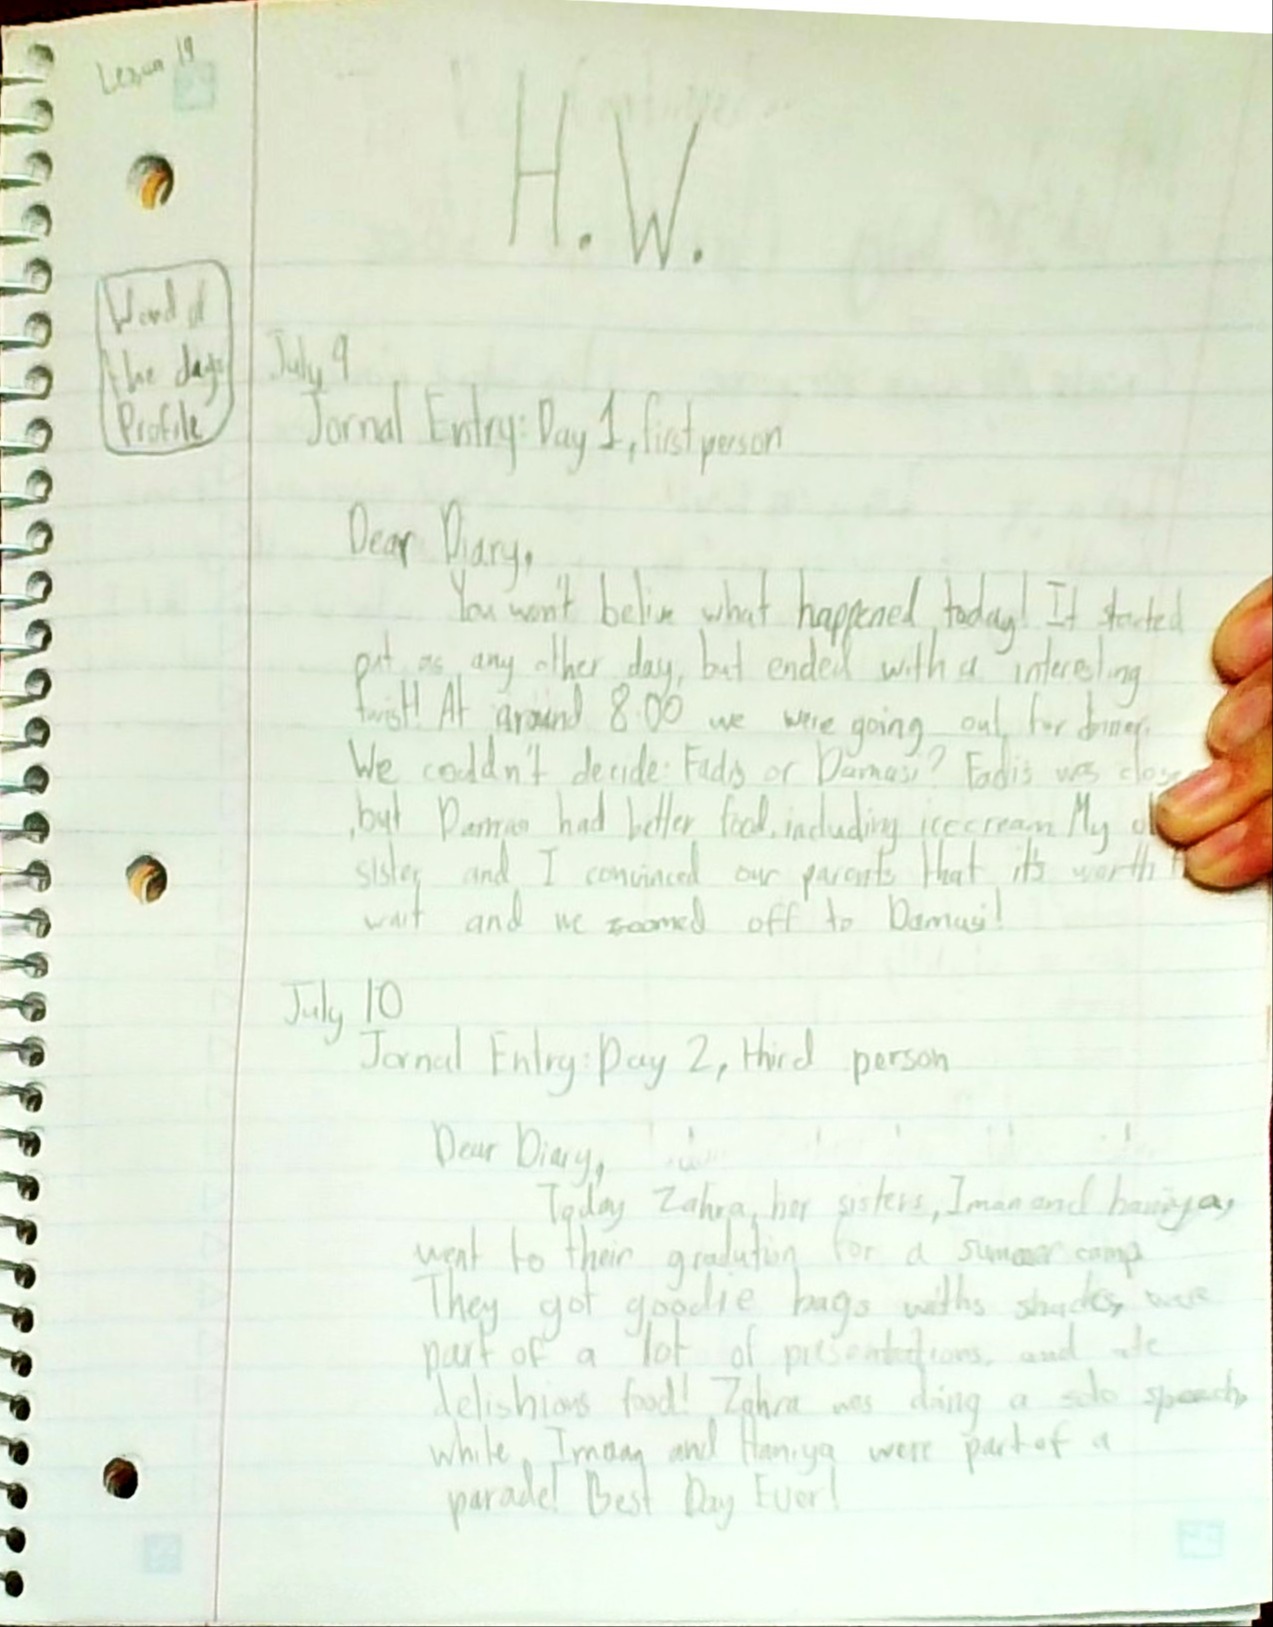 Lesson 19
H.W.
Word of
the day:
Profile
July 9
Jornal Entry: Day 1, first person
Dear Diary,
You won't belive what happened today! It started
out as any other day, but ended with a interesting
twist! At around 8:00 we were going out for dinner.
We couldn't decide: Fadis or Damasi? Fadis was
,but Damasi had better food, including icecream. My
sister and I convinced our parents that it's worth
wait and we zoomed off to Damasi!
July 10
Jornal Entry: Day 2, third person
Dear Diary,
Today Zahra, her sisters, Iman and haniya,
went to their gradution for a summer camp
They got goodie bags withs shades, were
part of a lot of presentations, and ate
delishious food! Zahra was doing a solo speech,
while Imaan and Haniya were part of a
parade! Best Day Ever!